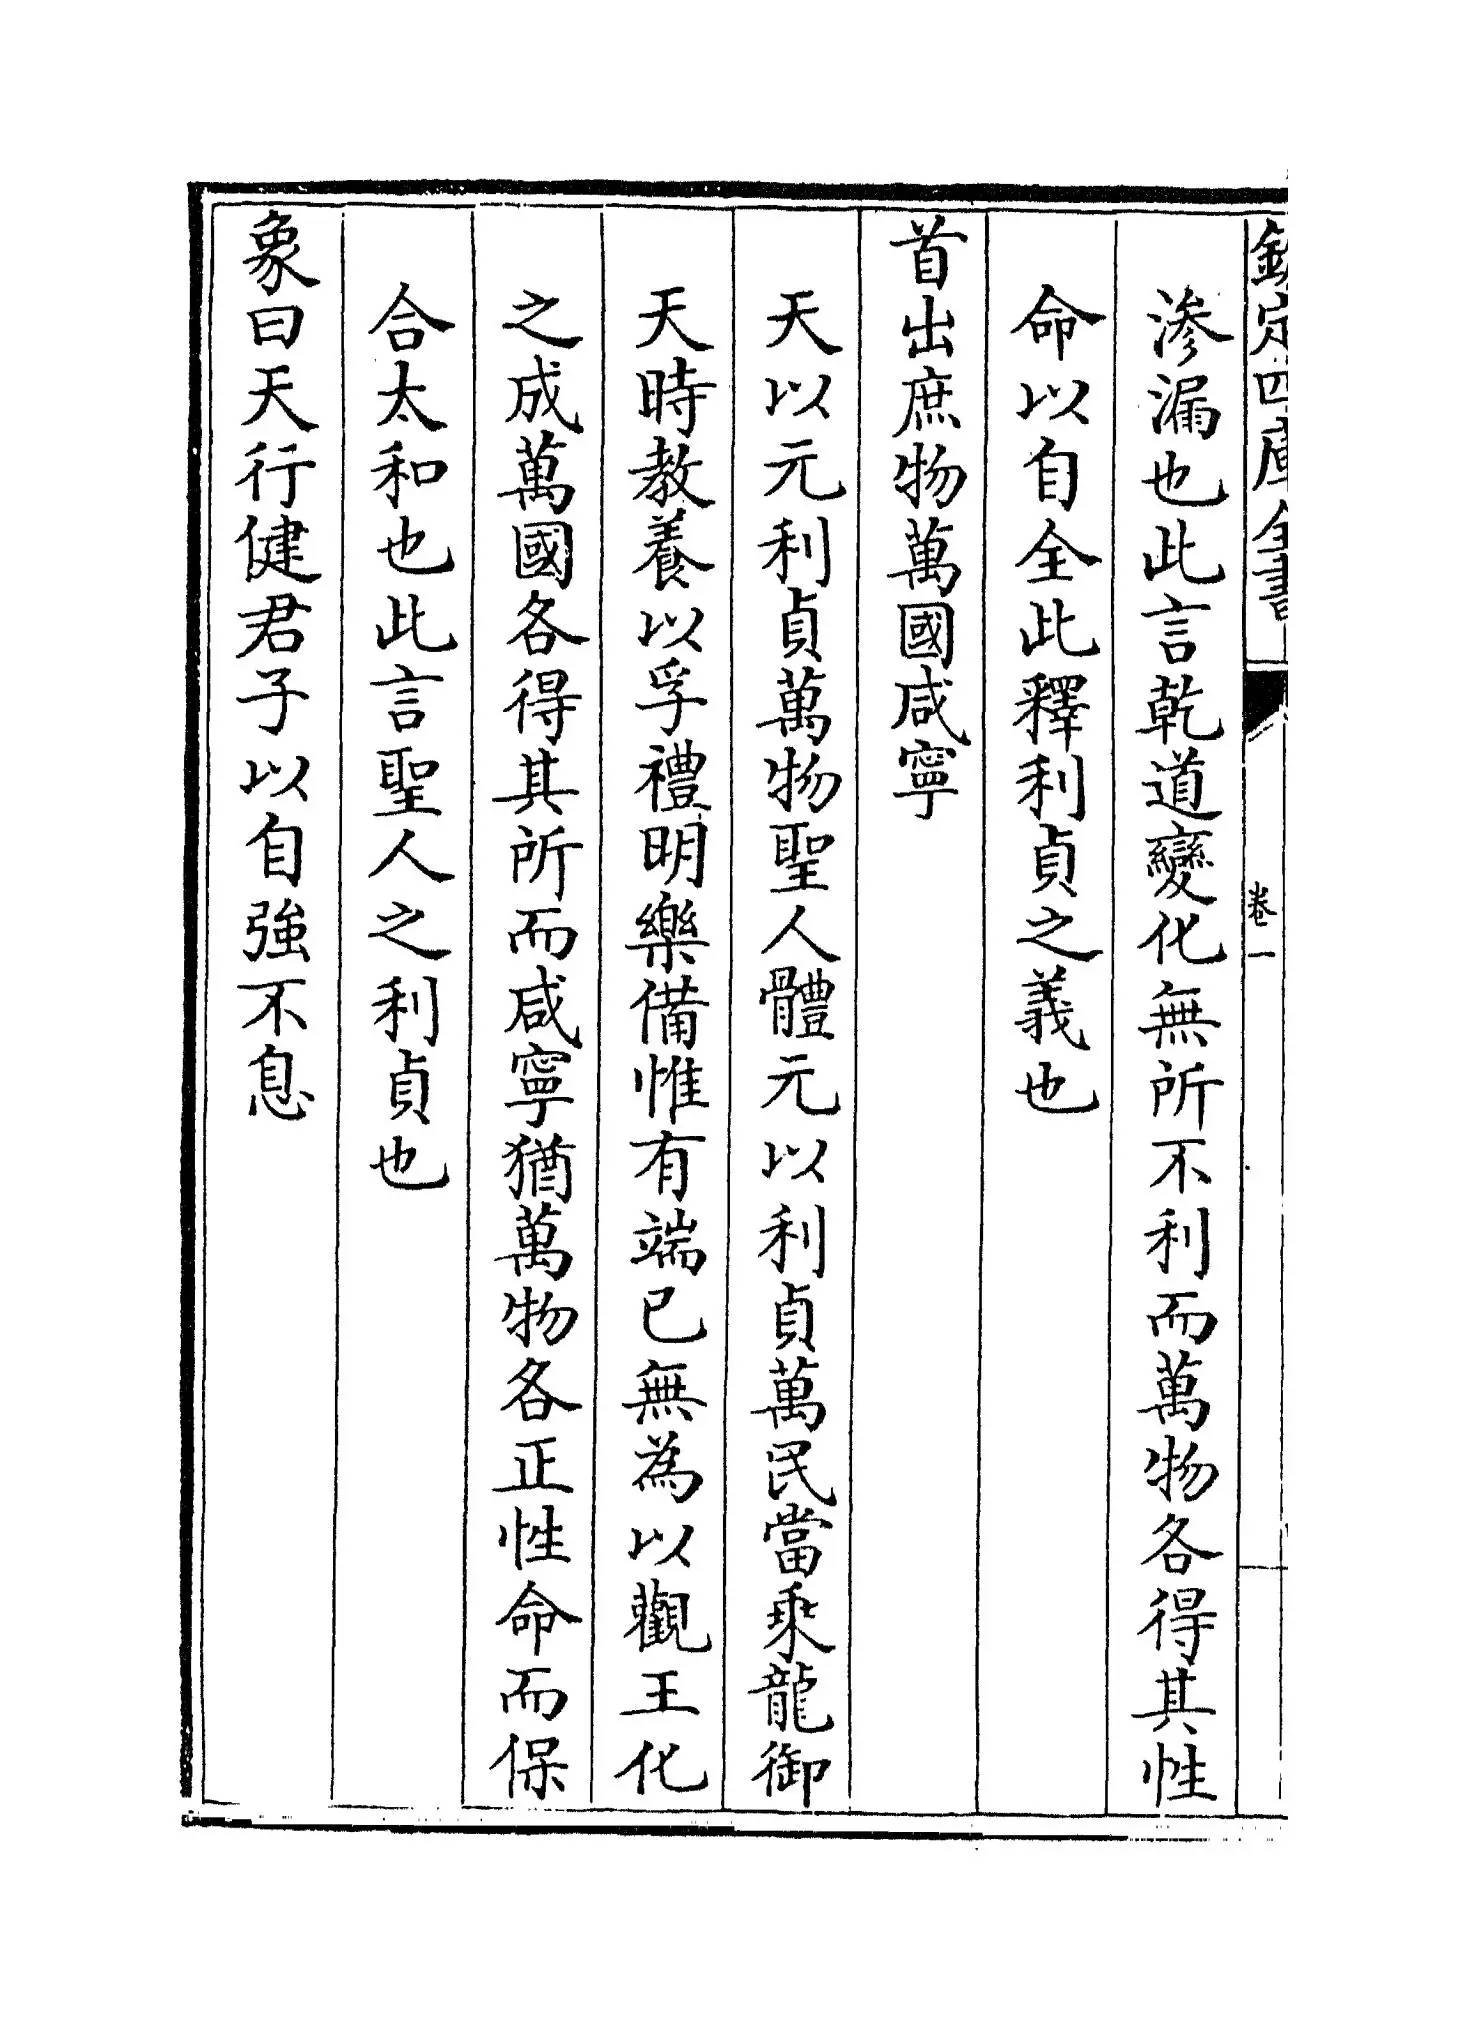 欽定四庫全書
卷一
滲漏也此言乾道變化無所不利而萬物各得其性
命以自全此釋利貞之義也
首出庶物萬國咸寧
天以元利貞萬物聖人體元以利貞萬民當乘龍御
天時教養以孚禮明樂備惟有端已無為以觀王化
之成萬國各得其所而咸寧猶萬物各正性命而保
合太和也此言聖人之利貞也
象曰天行健君子以自強不息